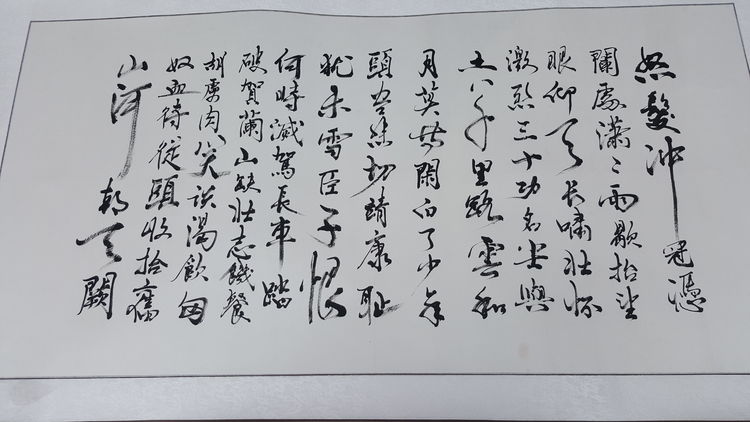 怒髮冲冠憑
闌處瀟〻雨歇抬望
眼仰天長嘯壯懷
激烈三十功名尘與
土八千里路雲和
月莫等閑白了少年
頭空悲切靖康恥
犹未雪臣子恨
何時滅駕長車踏
破賀蘭山缺壯志饑餐
胡虜肉笑談渴飲匈
奴血待從頭收拾舊
山河朝天闕